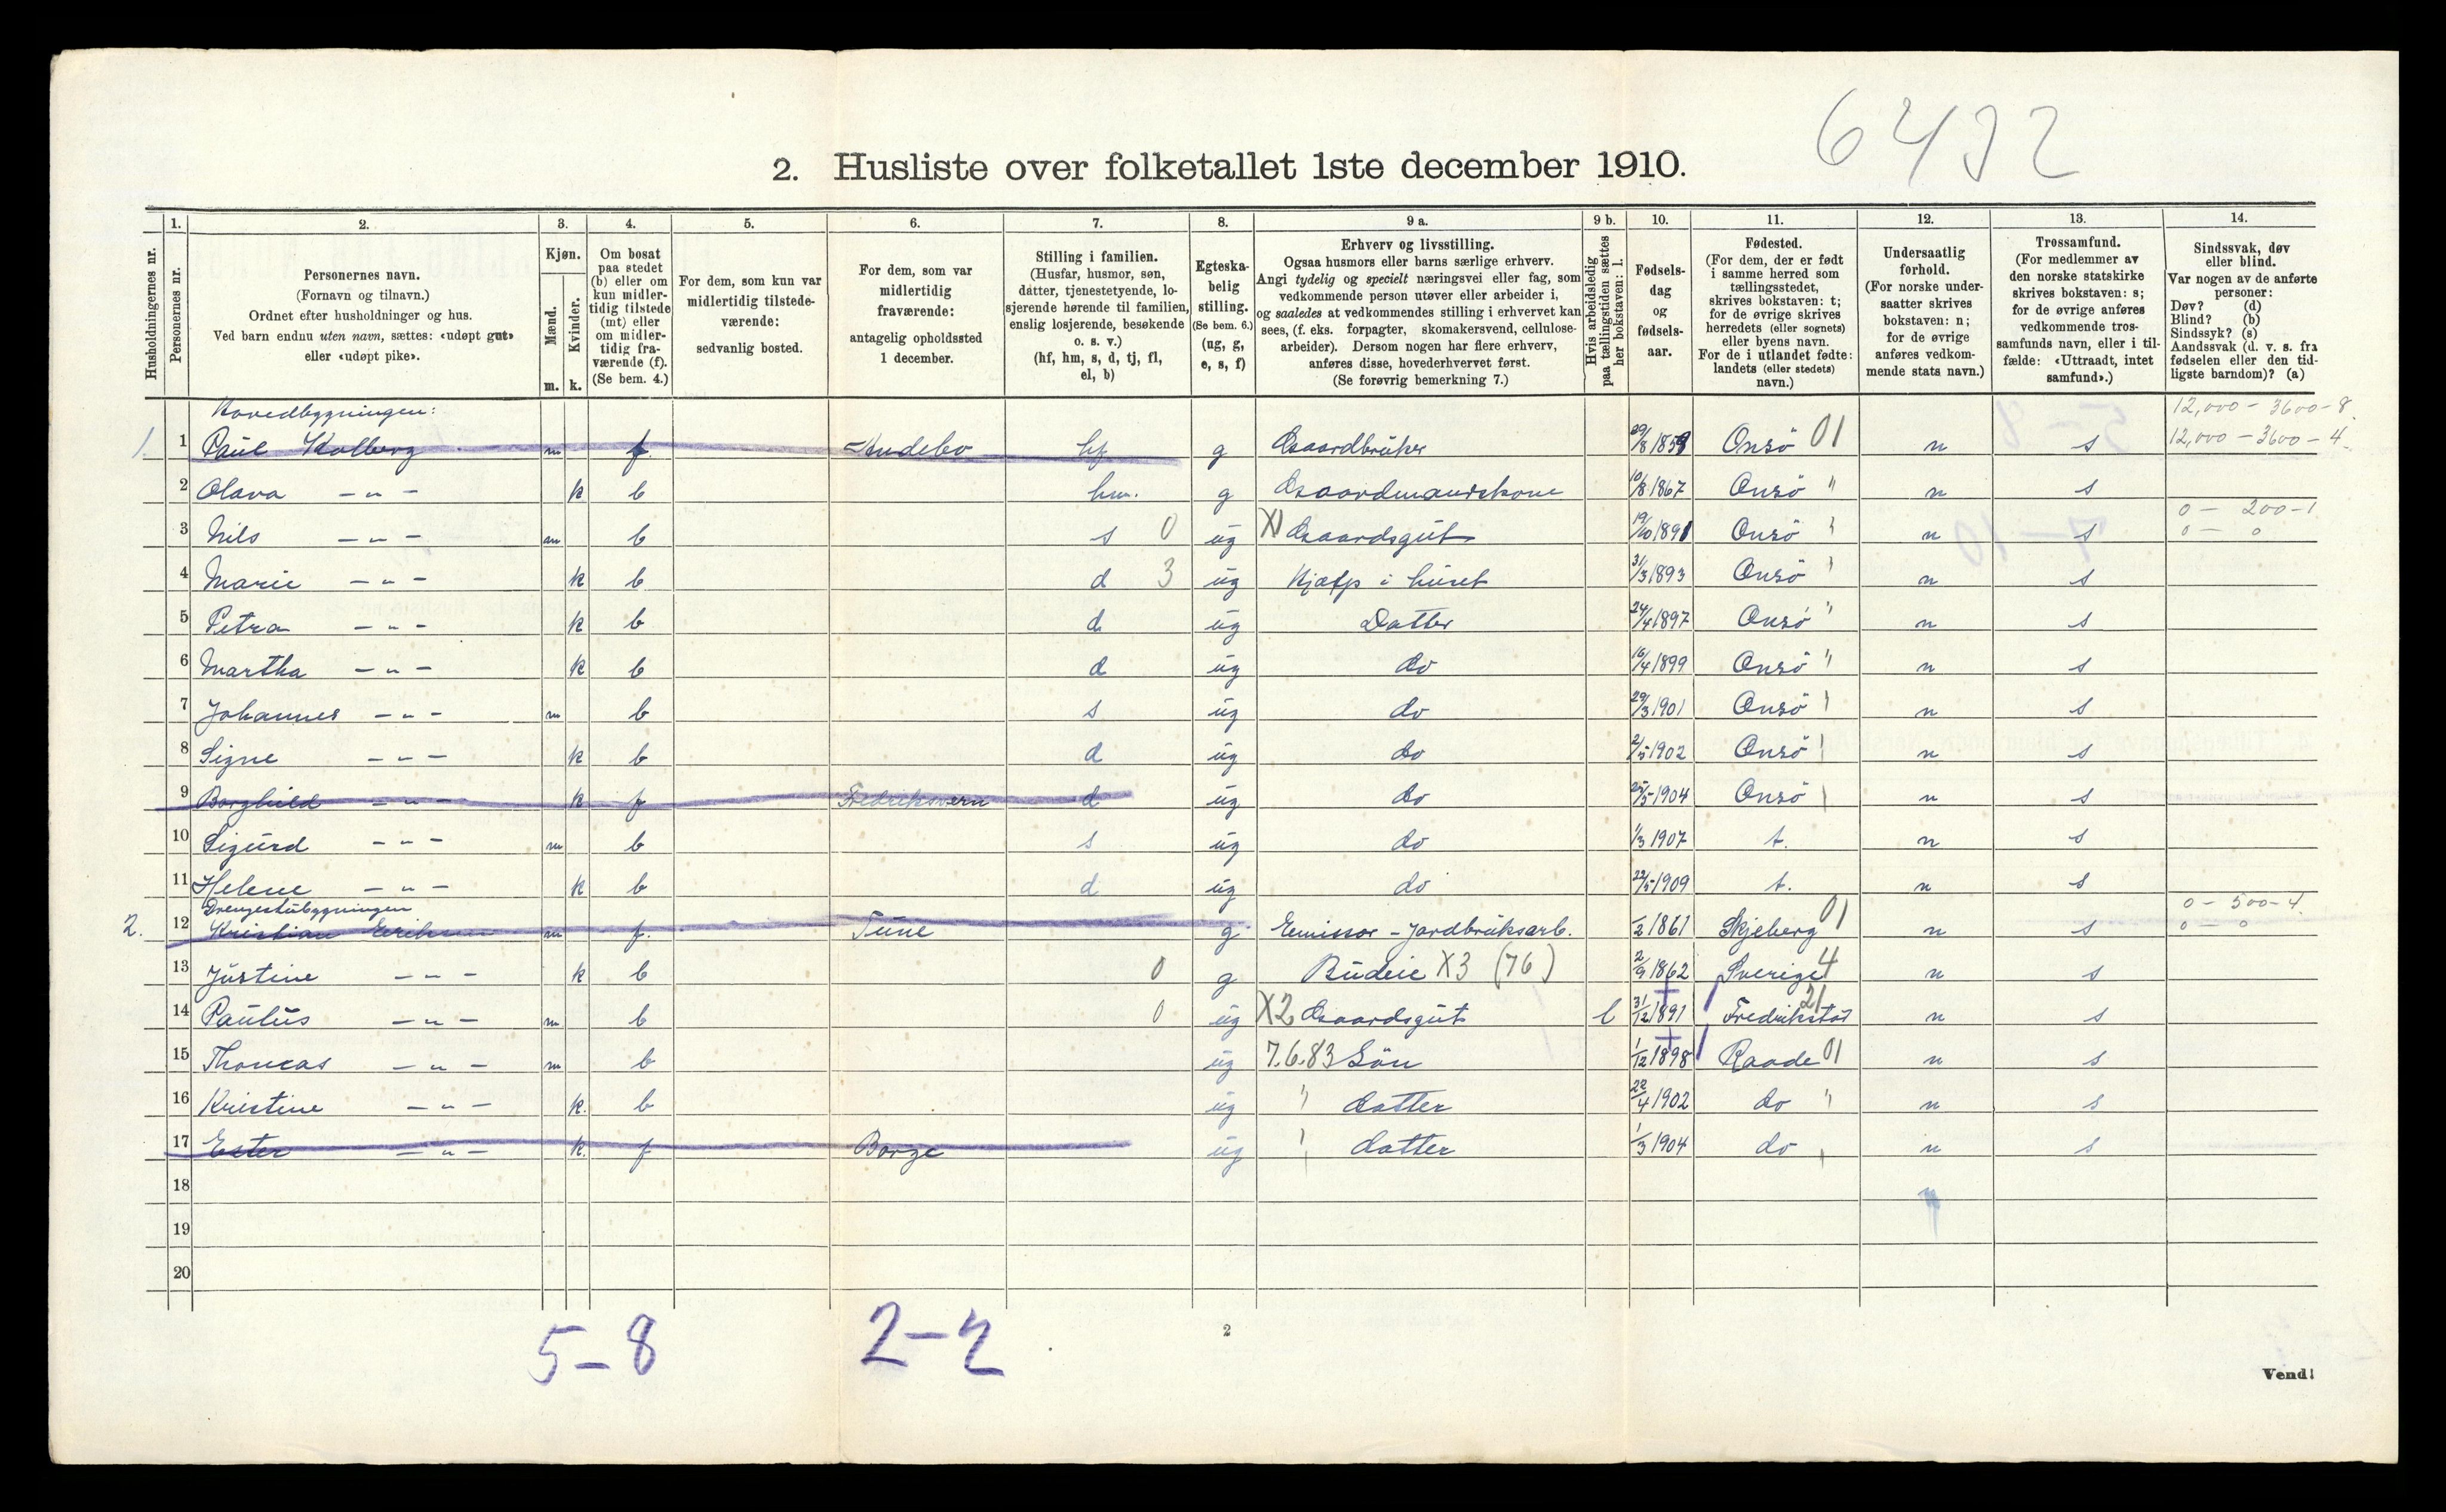 6432
2. Husliste over folketallet 1ste december 1910.
Husholdningernes nr.
1.
Personernes nr.
2.
Personernes navn.
(Fornavn og tilnavn.)
Ordnet efter husholdninger og hus.
Ved barn endnu uten navn, sættes: «udøpt gut»
eller «udøpt pike».
3.
Kjøn.
Mænd.
Kvinder.
m. k.
4.
Om bosat
paa stedet
(b) eller om
kun midler-
tidig tilstede
(mt) eller
om midler-
tidig fra-
værende (f).
(Se bem. 4.)
5.
For dem, som kun var
midlertidig tilstede-
værende:
sedvanlig bosted.
6.
For dem, som var
midlertidig
fraværende:
antagelig opholdssted
1 december.
7.
Stilling i familien.
(Husfar, husmor, søn,
datter, tjenestetyende, lo-
sjerende hørende til familien,
enslig losjerende, besøkende
o. s. v.)
(hf, hm, s, d, tj, fl,
el, b)
8.
Egteska-
belig
stilling.
(Se bem. 6.)
(ug, g,
e, s, f)
9 a.
Erhverv og livsstilling.
Ogsaa husmors eller barns særlige erhverv.
Angi tydelig og specielt næringsvei eller fag, som
vedkommende person utøver eller arbeider i,
og saaledes at vedkommendes stilling i erhvervet kan
sees, (f. eks. forpagter, skomakersvend, cellulose-
arbeider). Dersom nogen har flere erhverv,
anføres disse, hovederhvervet først.
(Se forøvrig bemerkning 7.)
9 b.
Hvis arbeidsledig
paa tællingstiden sættes
her bokstaven: l.
10.
Fødsels-
dag
og
fødsels-
aar.
11.
Fødested.
(For dem, der er født
i samme herred som
tællingsstedet,
skrives bokstaven: t;
for de øvrige skrives
herredets (eller sognets)
eller byens navn.
For de i utlandet fødte:
landets (eller stedets)
navn.)
12.
Undersaatlig
forhold.
(For norske under-
saatter skrives
bokstaven: n;
for de øvrige
anføres vedkom-
mende stats navn.)
13.
Trossamfund.
(For medlemmer av
den norske statskirke
skrives bokstaven: s;
for de øvrige anføres
vedkommende tros-
samfunds navn, eller i til-
fælde: «Uttraadt, intet
samfund».)
14.
Sindssvak, døv
eller blind.
Var nogen av de anførte
personer:
Døv? (d)
Blind? (b)
Sindssyk? (s)
Aandssvak (d. v. s. fra
fødselen eller den tid-
ligste barndom)? (a)
Hovedbygningen: 12,000 - 3600 - 8.
1. 1 Paul Kolberg m f Andebo hf g Gaardbruker 29/8 1859 Onsö 01 n s 12,000 - 3600 - 4.
2 Olava - " - k b hm. g Gaardmandskone 10/8 1867 Onsö " n s
0 - 200 - 1
3 Nils - " - m b s 0 ug X1 Gaardsgut 19/10 1891 Onsö " n s 0 - 0
4 Marie - " - k b d 3 ug Hjælp i huset 31/3 1893 Onsö " n s
5 Petra - " - k b d ug Datter 24/4 1897 Onsö " n s
6 Martha - " - k b d ug do 16/4 1899 Onsö " n s
7 Johannes - " - m b s ug do 29/3 1901 Onsö " n s
8 Signe - " - k b d ug do 2/5 1902 Onsö " n s
9 Borghild - " - k f Fredriksvern d ug do 25/5 1904 Onsö " n s
10 Sigurd - " - m b s ug do 1/3 1907 t. n s
11 Helene - " - k b d ug do 22/5 1909 t. n s
Drengestubygningen 0 - 500 - 4.
2. 12 Kristian Eriksen m f. Tune g Emissær - Jordbruksarb. 1/2 1861 Skjeberg 01 n s 0 - 0
13 Justine - " - k b 0 g Budeie X3 (76) 2/9 1862 Sverige 4 n s
14 Paulus - " - m b 0 ug X2 Gaardsgut l 31/12 1891 Fredrikstad 21 n s
15 Thomas - " - m b ug 7.6.83 Sön 1/12 1898 Raade 01 n s
16 Kristine - " - k. b ug " datter 22/4 1902 do " n s
17 Ester - " - k. f Borge ug " datter 1/3 1904 do " n s
18
19
20
5-8 2-2
2
Vend!